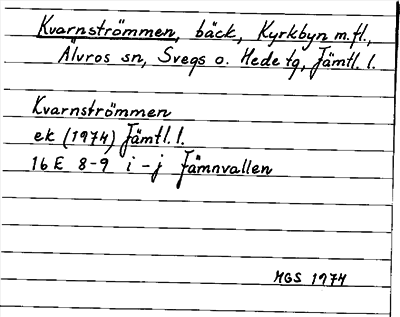 Kvarnströmmen, bäck, Kyrkbyn m.fl.,
Älvros sn, Svegs o. Hede tg, Jämtl. l.
Kvarnströmmen
ek (1974) Jämtl. l.
16 E 8-9 i-j Jämnvallen
MGS 1974